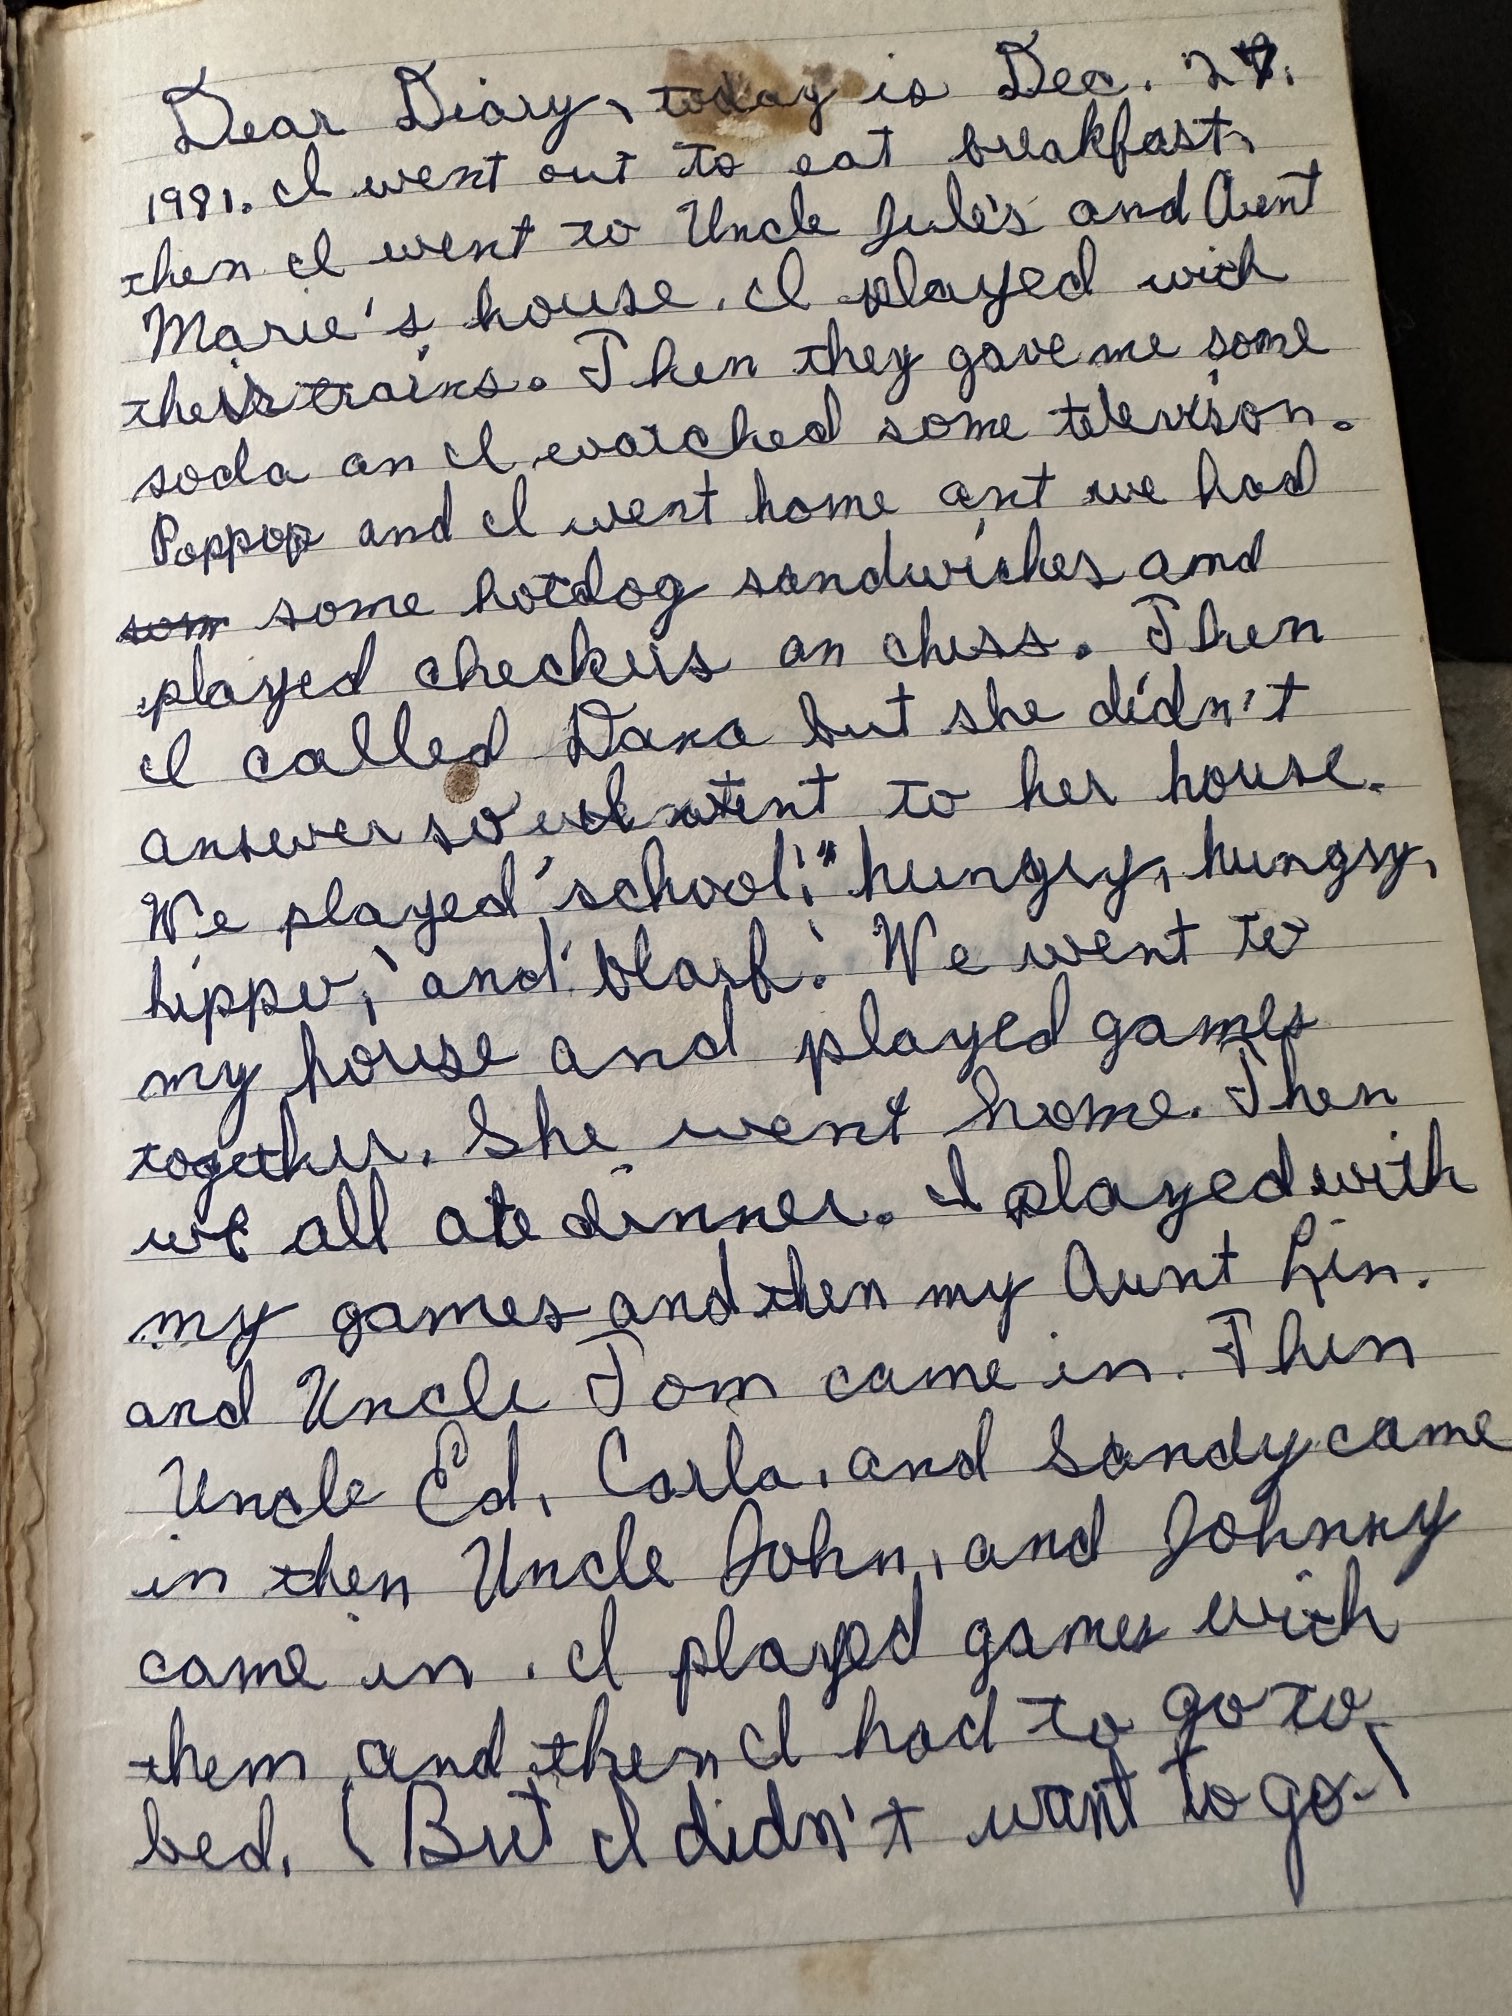 Dear Diary, today is Dec. 27,
1981. I went out to eat breakfast,
then I went to Uncle Jule's and Aunt
Marie's house. I played with
their trains. Then they gave me some
soda an I watched some televison.
Poppop and I went home ant we had
som some hotdog sandwiches and
played checkers an chess. Then
I called Dana but she didn't
answer so I went to her house.
We played "school," "hungry, hungry,
hippo," and "blast." We went to
my house and played games
together. She went home. Then
we all ate dinner. I played with
my games and then my Aunt Lin.
and Uncle Tom came in. Then
Uncle Ed, Carla, and Sandy came
in then Uncle John, and Johnny
came in. I played games with
them and then I had to go to
bed. (But I didn't want to go.)